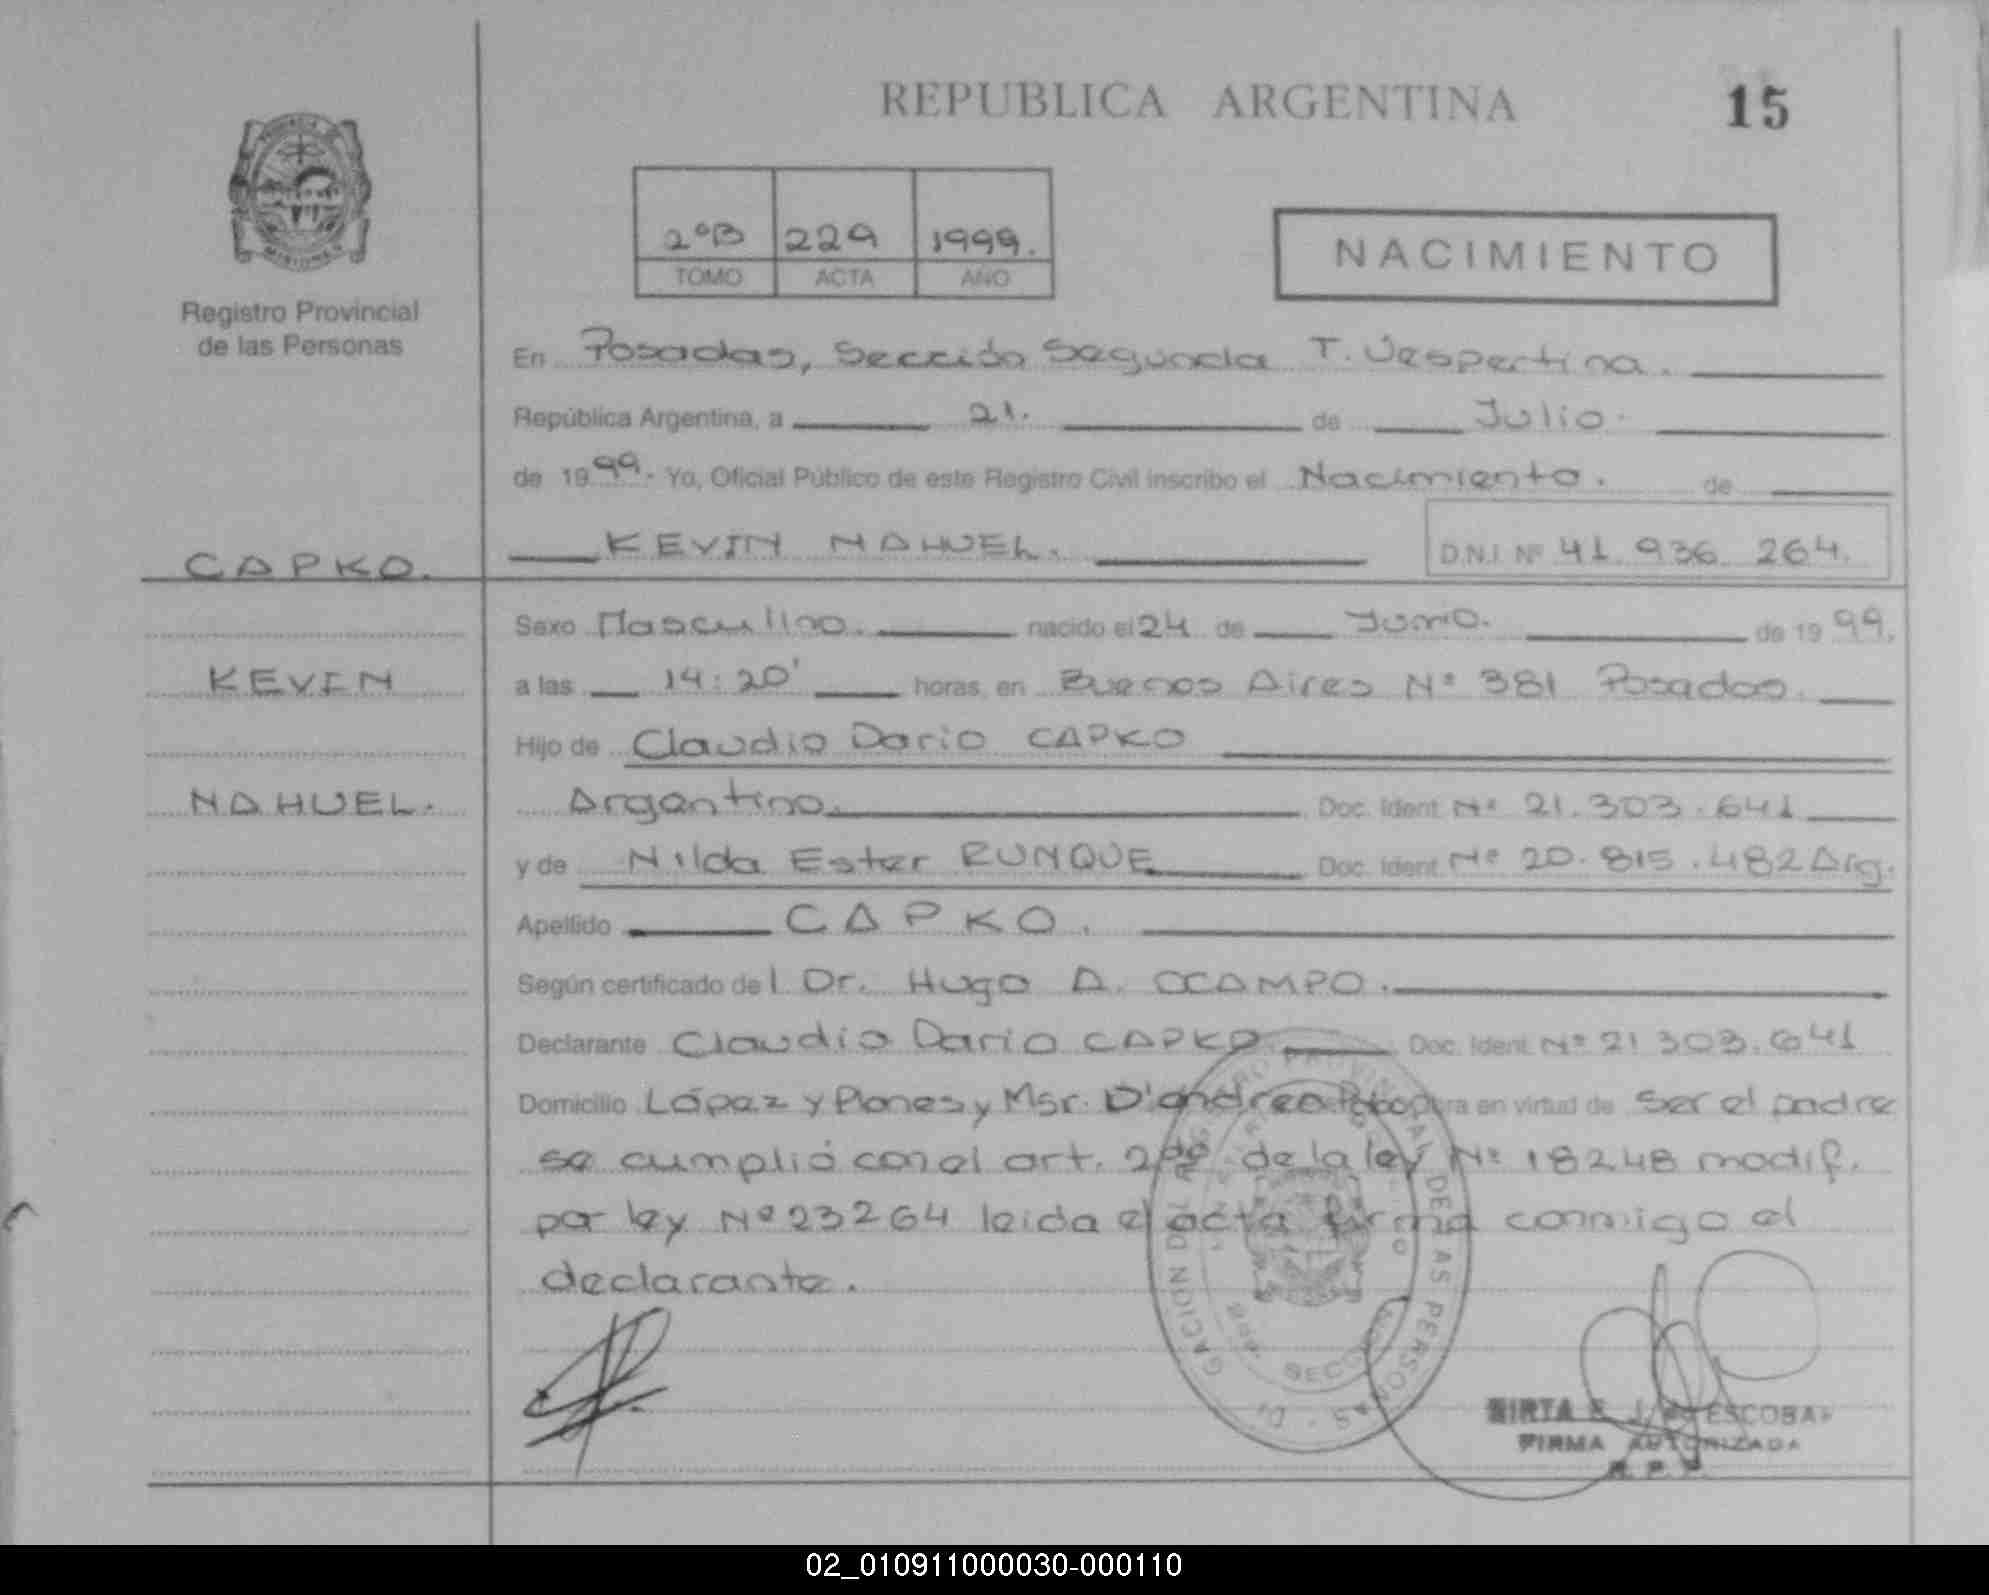 REPUBLICA ARGENTINA
15
2ºB 229 1999.
TOMO ACTA AÑO
NACIMIENTO
MISIONES
Registro Provincial
de las Personas
En Posadas, Sección Segunda T. Vespertina.
República Argentina, a 21. de Julio.
de 1999.- Yo, Oficial Público de este Registro Civil inscribo el Nacimiento. de
KEVIN NAHUEL. D.N.I. Nº 41.936.264.
CAPKO.
Sexo Masculino. nacido el 24 de Junio. de 1999.
KEVIN
a las 14:20' horas, en Buenos Aires Nº 381 Posadas.
Hijo de Claudio Dario CAPKO
NAHUEL.
Argentino. Doc. Ident. Nº 21.303.641
y de Nilda Ester RUNQUE Doc. Ident. Nº 20.815.482 Arg.
Apellido CAPKO.
Según certificado del Dr. Hugo A. OCAMPO.
Declarante Claudio Dario CAPKO Doc. Ident. Nº 21.303.641
Domicilio López y Planes y Msr. D'andrea en virtud de ser el padre
se cumplió con el art. 2do de la ley Nº 18248 modif.
por ley Nº 23264 leida el acta firma conmigo el
declarante.
REGISTRO PROVINCIAL DE LAS PERSONAS
ESCOBAR
FIRMA AUTORIZADA
02_010911000030-000110